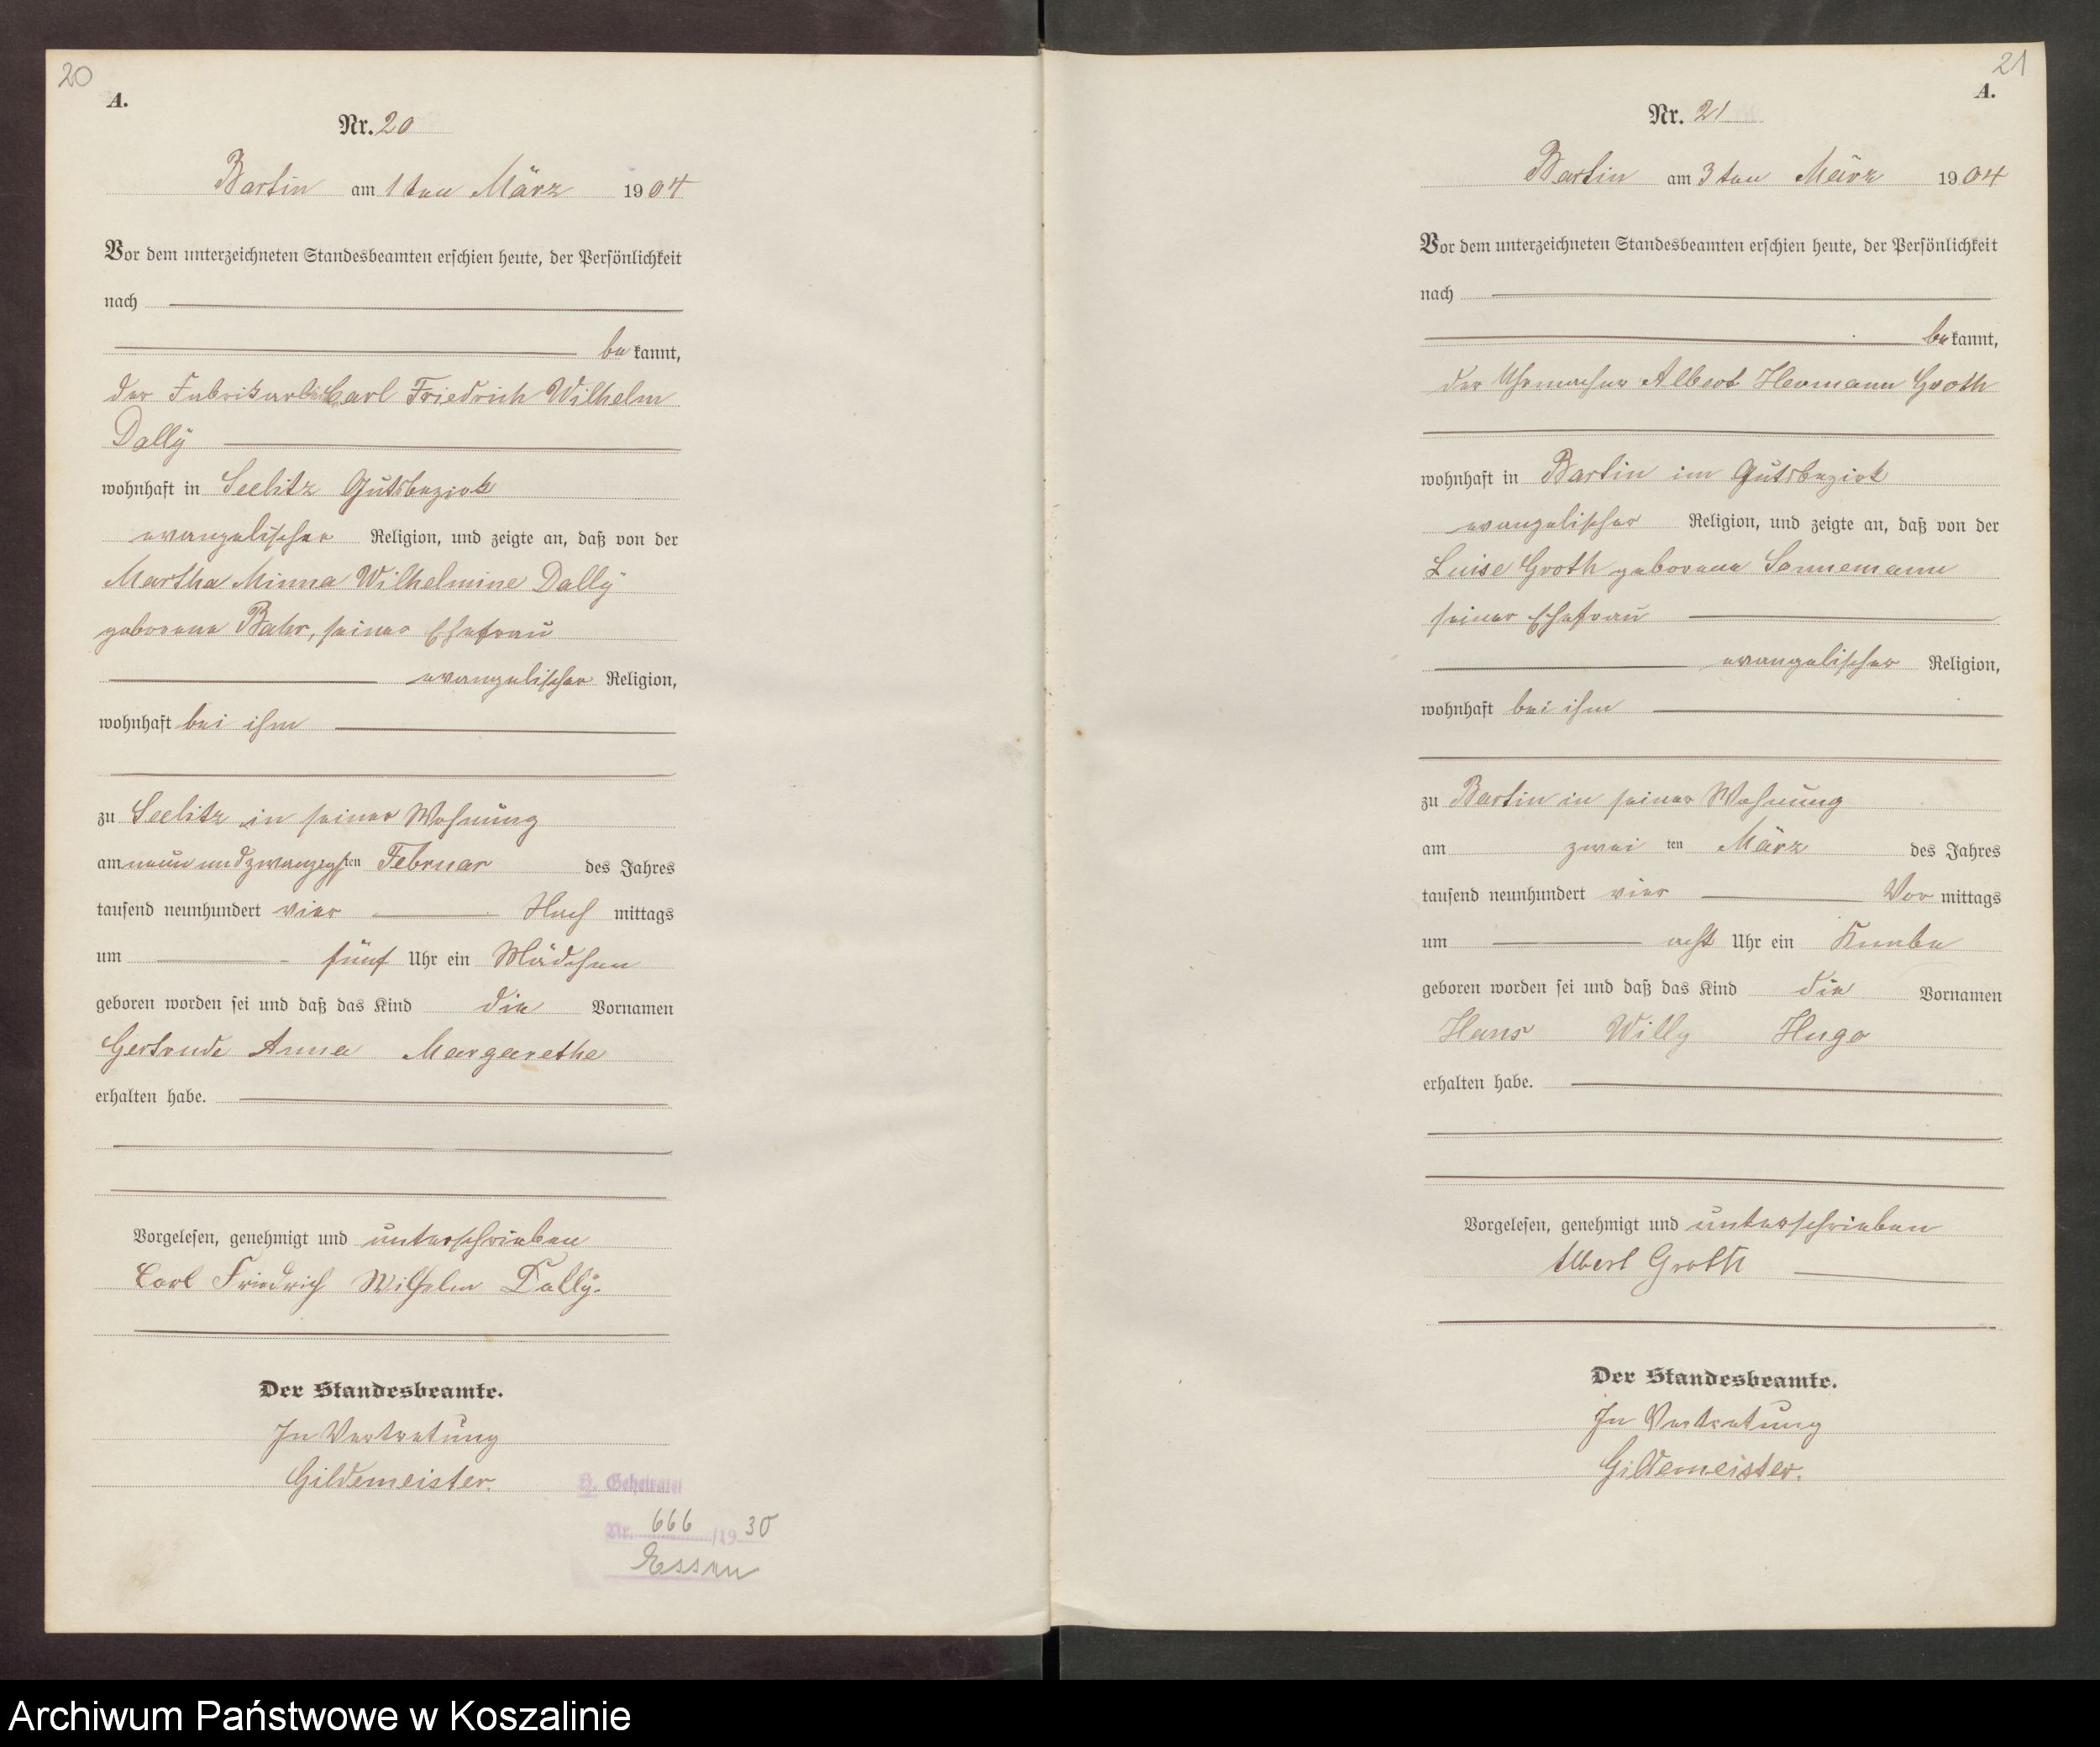 20
A.
Nr. 20
Bartin am 1ten März 1904
Vor dem unterzeichneten Standesbeamten erschien heute, der Persönlichkeit
nach
be kannt,
der Fabrikarbeiter Carl Friedrich Wilhelm
Dally
wohnhaft in Seelitz Gutsbezirk
evangelischer Religion, und zeigte an, daß von der
Martha Minna Wilhelmine Dally
geborene Bahr, seiner Ehefrau
evangelischer Religion,
wohnhaft bei ihm
zu Seelitz in seiner Wohnung
am neun und zwanzigsten Februar des Jahres
tausend neunhundert vier Nach mittags
um fünf Uhr ein Mädchen
geboren worden sei und daß das Kind die Vornamen
Gertrude Anna Margarethe
erhalten habe.
Vorgelesen, genehmigt und unterschrieben
Carl Friedrich Wilhelm Dally.
Der Standesbeamte.
In Vertretung
Gildemeister.
H. Geheiratet
Nr. 666 /19 30
Essen
21
A.
Nr. 21
Bartin am 3ten März 1904
Vor dem unterzeichneten Standesbeamten erschien heute, der Persönlichkeit
nach
be kannt,
der Uhrmacher Albert Hermann Groth
wohnhaft in Bartin im Gutsbezirk
evangelischer Religion, und zeigte an, daß von der
Luise Groth geborene Sannemann
seiner Ehefrau
evangelischer Religion,
wohnhaft bei ihm
zu Bartin in seiner Wohnung
am zwei ten März des Jahres
tausend neunhundert vier Vor mittags
um acht Uhr ein Knabe
geboren worden sei und daß das Kind die Vornamen
Hans Willy Hugo
erhalten habe.
Vorgelesen, genehmigt und unterschrieben
Albert Groth
Der Standesbeamte.
In Vertretung
Gildemeister.
Archiwum Państwowe w Koszalinie